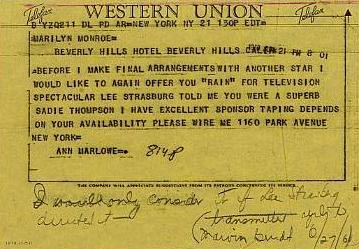 Telefax WESTERN UNION Telefax
B'YZQ211 DL PD AR=NEW YORK NY 21 130P EDT=
MARILYN MONROE=
BEVERLY HILLS HOTEL BEVERLY HILLS CALIF=
21 PM 8 01
=BEFORE I MAKE FINAL ARRANGEMENTS WITH ANOTHER STAR I
WOULD LIKE TO AGAIN OFFER YOU "RAIN" FOR TELEVISION
SPECTACULAR LEE STRASBURG TOLD ME YOU WERE A SUPERB
SADIE THOMPSON I HAVE EXCELLENT SPONSOR TAPING DEPENDS
ON YOUR AVAILABILITY PLEASE WIRE ME 1160 PARK AVENUE
NEW YORK=
ANN MARLOWE= 814P
THE COMPANY WILL APPRECIATE SUGGESTIONS FROM ITS PATRONS CONCERNING ITS SERVICE
I would only consider it if Lee Strasberg
directed it